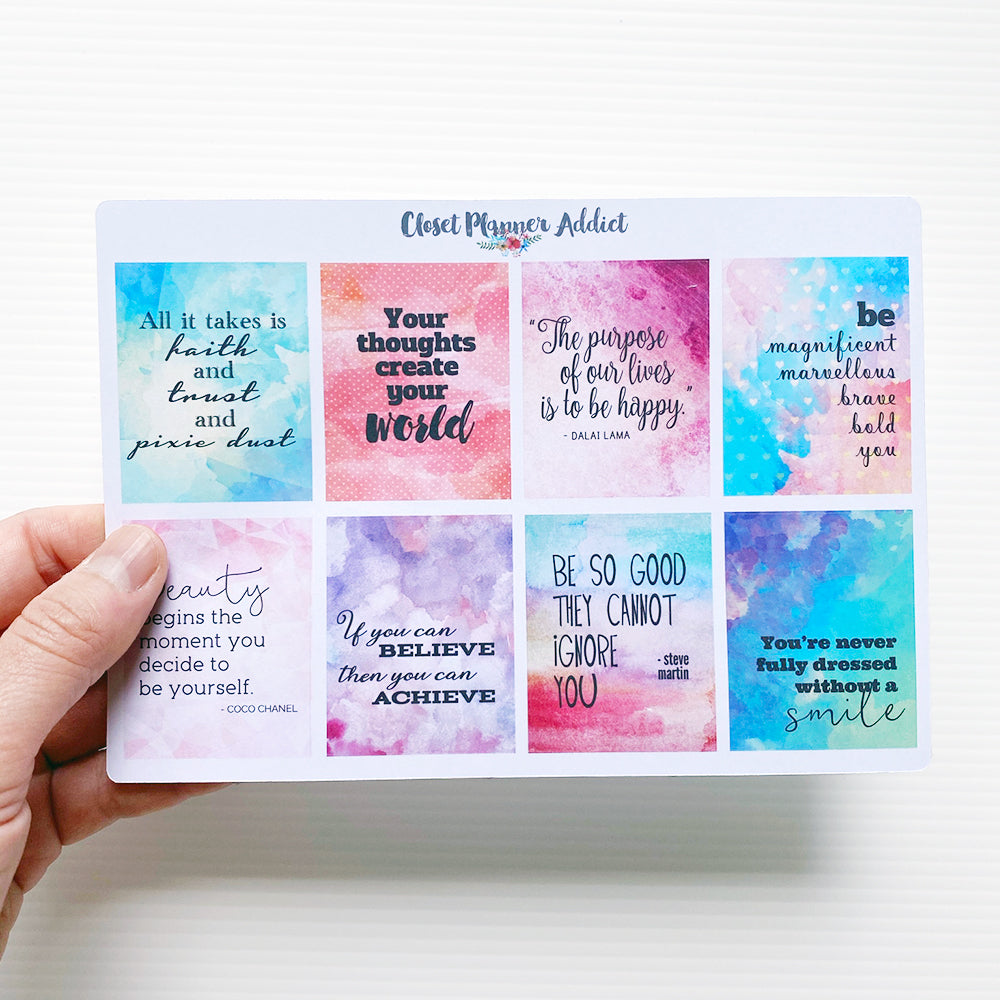 Closet Planner Addict
All it takes is
faith
and
trust
and
pixie dust
Your
thoughts
create
your
world
"The purpose
of our lives
is to be happy."
- DALAI LAMA
be
magnificent
marvellous
brave
bold
you
Beauty
begins the
moment you
decide to
be yourself.
- COCO CHANEL
If you can
BELIEVE
then you can
ACHIEVE
BE SO GOOD
THEY CANNOT
iGNORE
YOU
- steve
martin
You're never
fully dressed
without a
smile